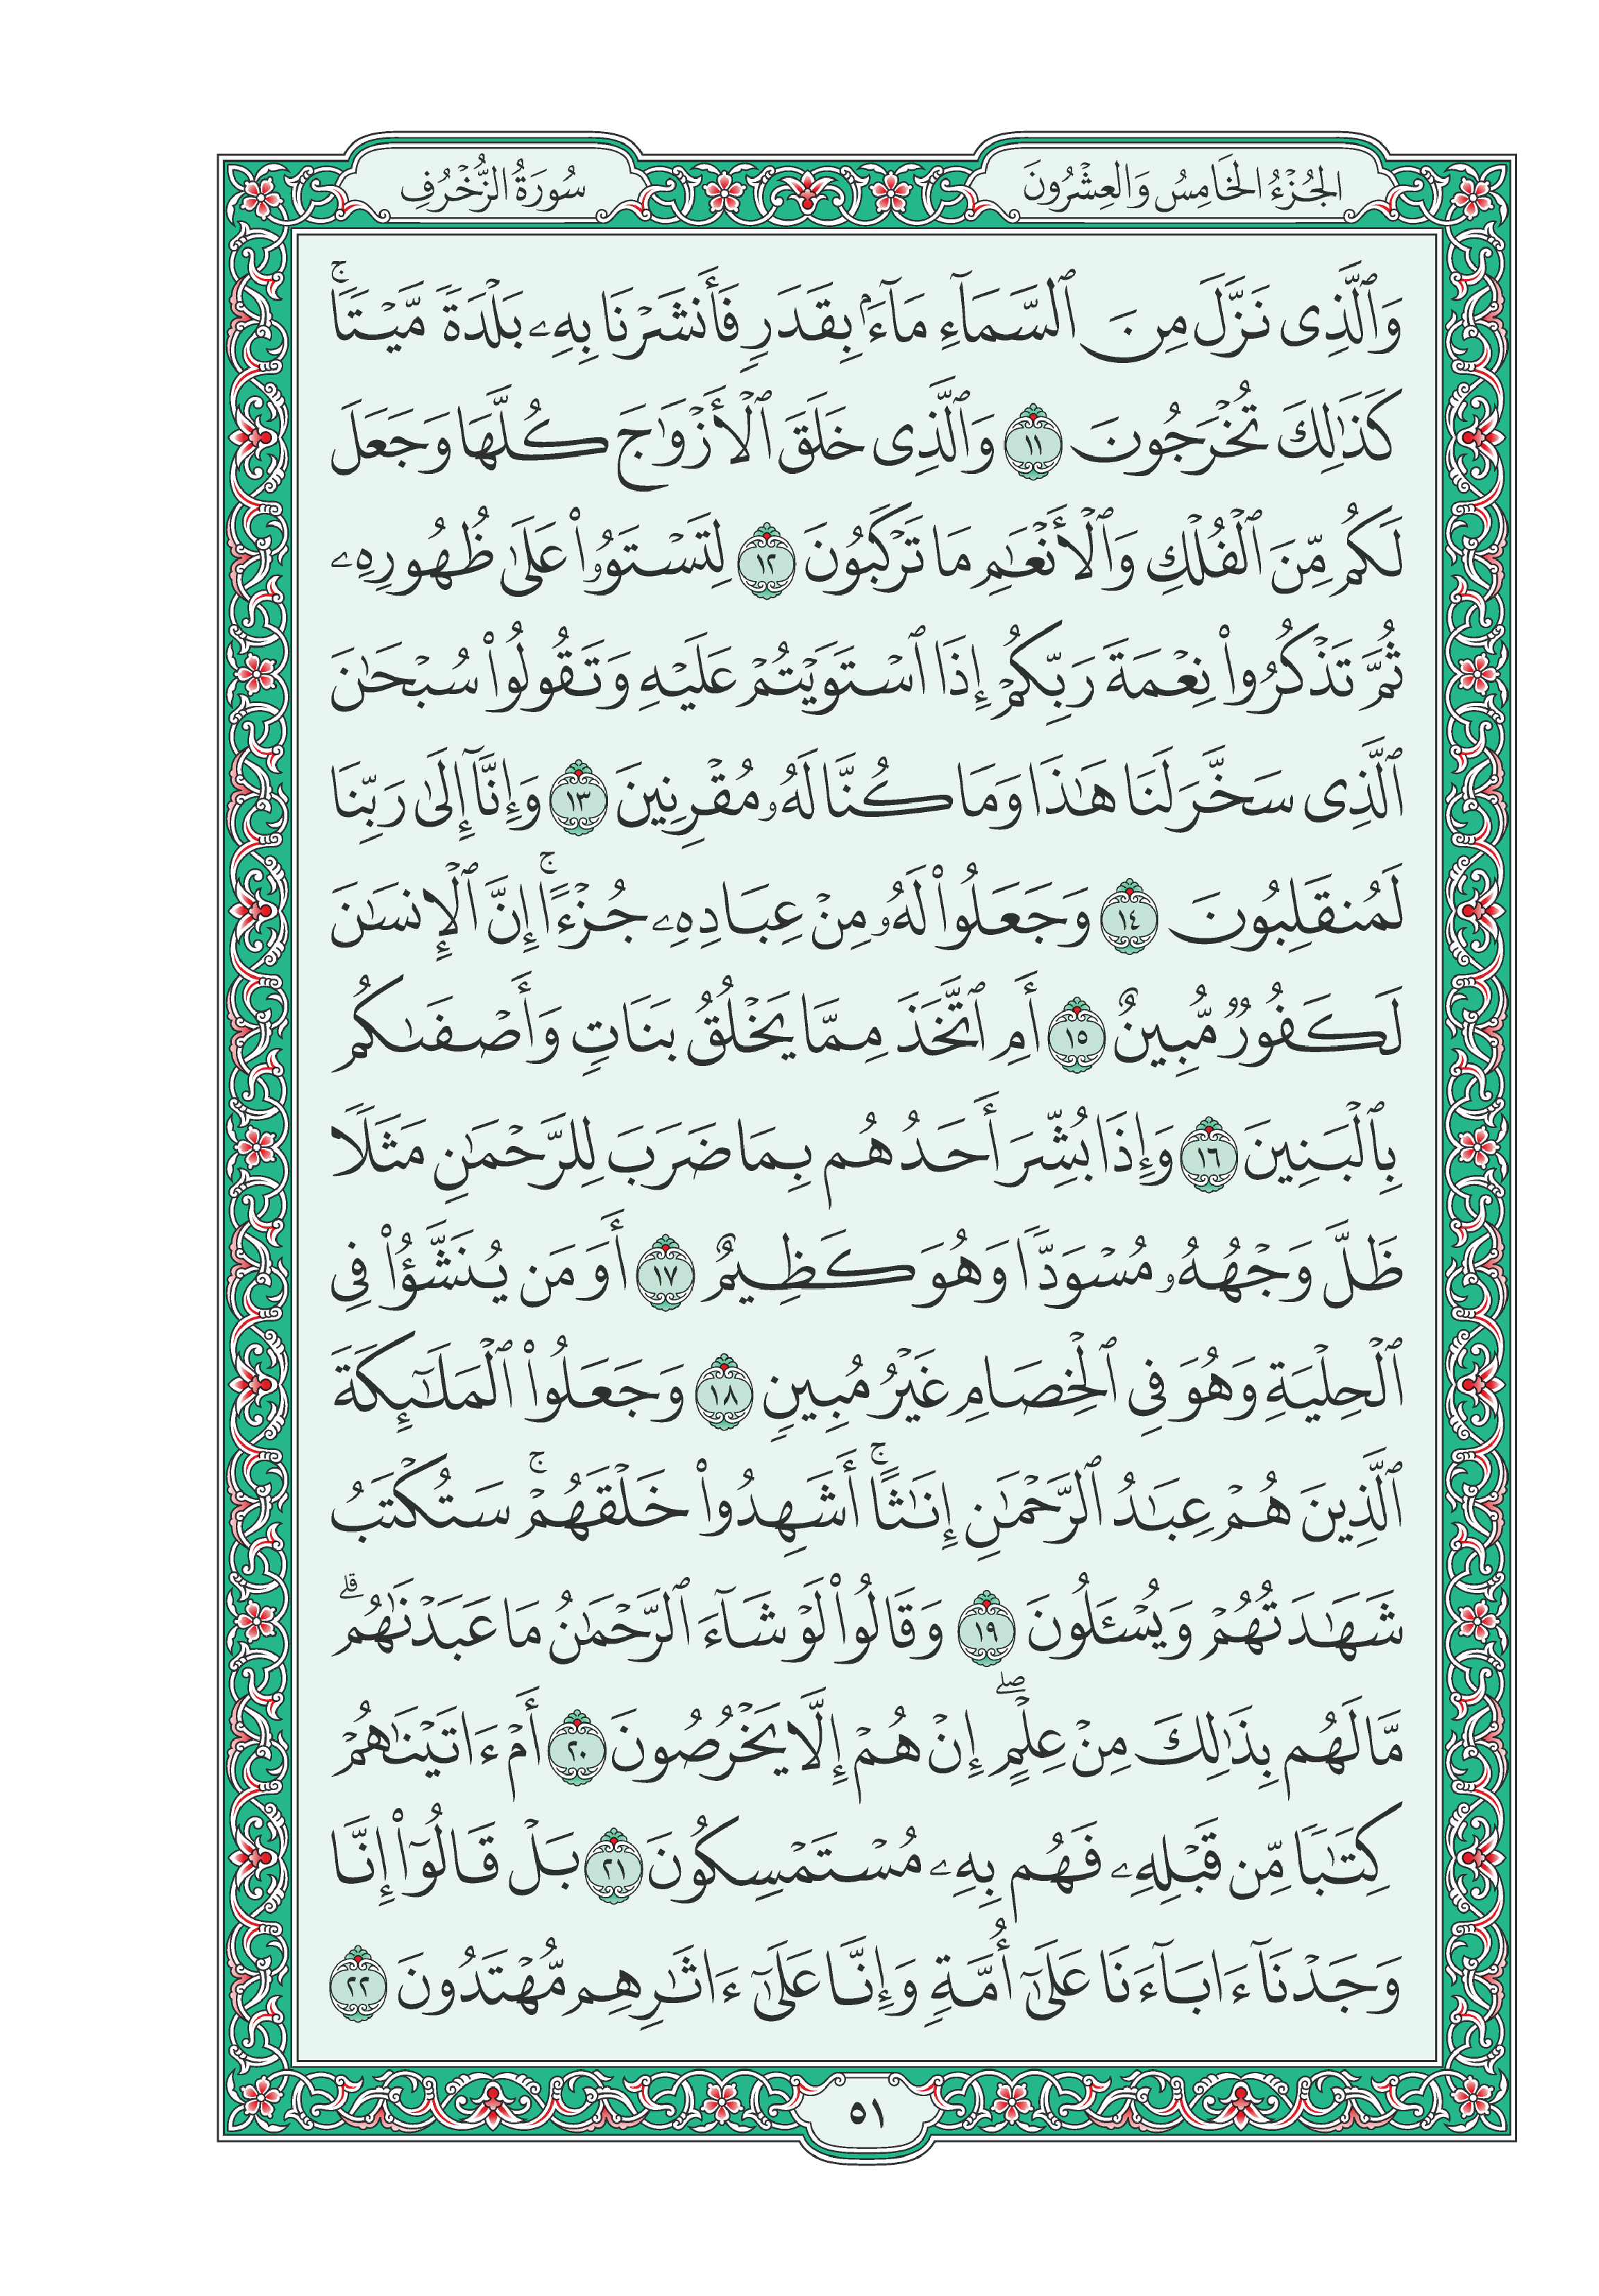 الجُزْءُ الخَامِسُ وَالعِشْرُونَ
سُورَةُ الزُّخْرُفِ
وَٱلَّذِى نَزَّلَ مِنَ ٱلسَّمَآءِ مَآءَۢ بِقَدَرٖ فَأَنشَرۡنَا بِهِۦ بَلۡدَةٗ مَّيۡتٗاۚ
كَذَٰلِكَ تُخۡرَجُونَ ١١ وَٱلَّذِى خَلَقَ ٱلۡأَزۡوَٰجَ كُلَّهَا وَجَعَلَ
لَكُم مِّنَ ٱلۡفُلۡكِ وَٱلۡأَنۡعَٰمِ مَا تَرۡكَبُونَ ١٢ لِتَسۡتَوُۥاْ عَلَىٰ ظُهُورِهِۦ
ثُمَّ تَذۡكُرُواْ نِعۡمَةَ رَبِّكُمۡ إِذَا ٱسۡتَوَيۡتُمۡ عَلَيۡهِ وَتَقُولُواْ سُبۡحَٰنَ
ٱلَّذِى سَخَّرَ لَنَا هَٰذَا وَمَا كُنَّا لَهُۥ مُقۡرِنِينَ ١٣ وَإِنَّآ إِلَىٰ رَبِّنَا
لَمُنقَلِبُونَ ١٤ وَجَعَلُواْ لَهُۥ مِنۡ عِبَادِهِۦ جُزۡءًاۚ إِنَّ ٱلۡإِنسَٰنَ
لَكَفُورٞ مُّبِينٌ ١٥ أَمِ ٱتَّخَذَ مِمَّا يَخۡلُقُ بَنَاتٖ وَأَصۡفَىٰكُم
بِٱلۡبَنِينَ ١٦ وَإِذَا بُشِّرَ أَحَدُهُم بِمَا ضَرَبَ لِلرَّحۡمَٰنِ مَثَلٗا
ظَلَّ وَجۡهُهُۥ مُسۡوَدّٗا وَهُوَ كَظِيمٌ ١٧ أَوَمَن يُنَشَّؤُاْ فِى
ٱلۡحِلۡيَةِ وَهُوَ فِى ٱلۡخِصَامِ غَيۡرُ مُبِينٖ ١٨ وَجَعَلُواْ ٱلۡمَلَٰٓئِكَةَ
ٱلَّذِينَ هُمۡ عِبَٰدُ ٱلرَّحۡمَٰنِ إِنَٰثًاۚ أَشَهِدُواْ خَلۡقَهُمۡۚ سَتُكۡتَبُ
شَهَٰدَتُهُمۡ وَيُسۡـَٔلُونَ ١٩ وَقَالُواْ لَوۡ شَآءَ ٱلرَّحۡمَٰنُ مَا عَبَدۡنَٰهُمۗ
مَّا لَهُم بِذَٰلِكَ مِنۡ عِلۡمٍۖ إِنۡ هُمۡ إِلَّا يَخۡرُصُونَ ٢٠ أَمۡ ءَاتَيۡنَٰهُمۡ
كِتَٰبٗا مِّن قَبۡلِهِۦ فَهُم بِهِۦ مُسۡتَمۡسِكُونَ ٢١ بَلۡ قَالُوٓاْ إِنَّا
وَجَدۡنَآ ءَابَآءَنَا عَلَىٰٓ أُمَّةٖ وَإِنَّا عَلَىٰٓ ءَاثَٰرِهِم مُّهۡتَدُونَ ٢٢
٥١